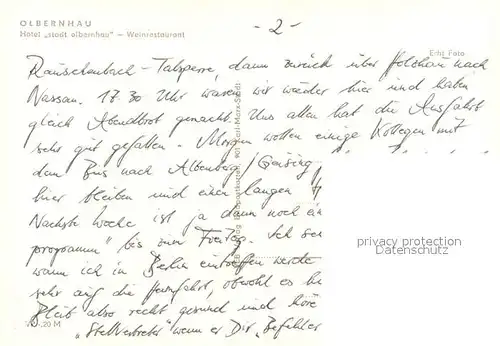 OLBERNHAU
Hotel „stadt olbernhau" — Weinrestaurant
- 2 -
Echt Foto
Rauschenbach-Talsperre, dann zurück über Holzhau nach
Nassau. 17.30 Uhr waren wir wieder hier und haben
gleich Abendbrot gemacht. Uns allen hat die Ausfahrt
sehr gut gefallen. Morgen wollen einige Kollegen mit
dem Bus nach Altenberg / Geising,
hier bleiben und einen langen
Nächste Woche ist ja dann noch ein
programm" bis zum Freitag. Ich
wann ich in Berlin eintreffen werde
sehr auf die Heimfahrt, obwohl es
Bleib also recht gesund und höre
„Stellvertreter" wenn er Dir „Befehle
privacy protection
Datenschutz
0,20 M